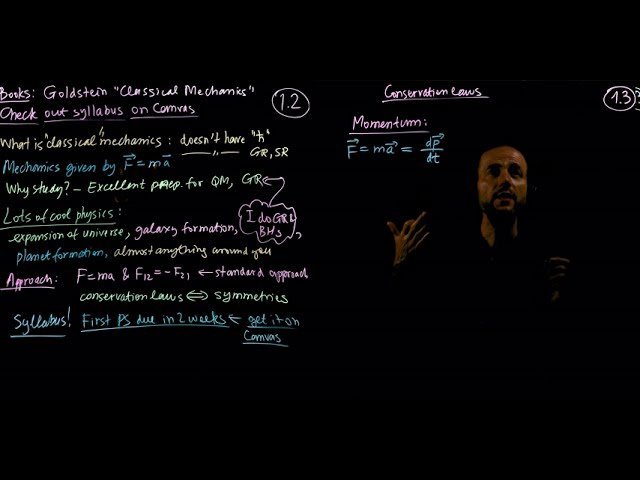 Books: Goldstein "Classical Mechanics"
Check out syllabus on Canvas
1.2
What is "classical" mechanics: doesn't have "ħ"
〃 〃 GR, SR
Mechanics given by F⃗ = ma⃗
Why study? – Excellent prep. for QM, GR
Lots of cool physics:
I do GR &
BHs
expansion of universe, galaxy formation,
planet formation, almost anything around you
Approach: F=ma & F₁₂=-F₂₁ ← standard approach
conservation laws ⇔ symmetries
Syllabus! First PS due in 2 weeks ← get it on
Canvas
Conservation laws
1.3
Momentum:
F⃗ = ma⃗ = dp⃗/dt